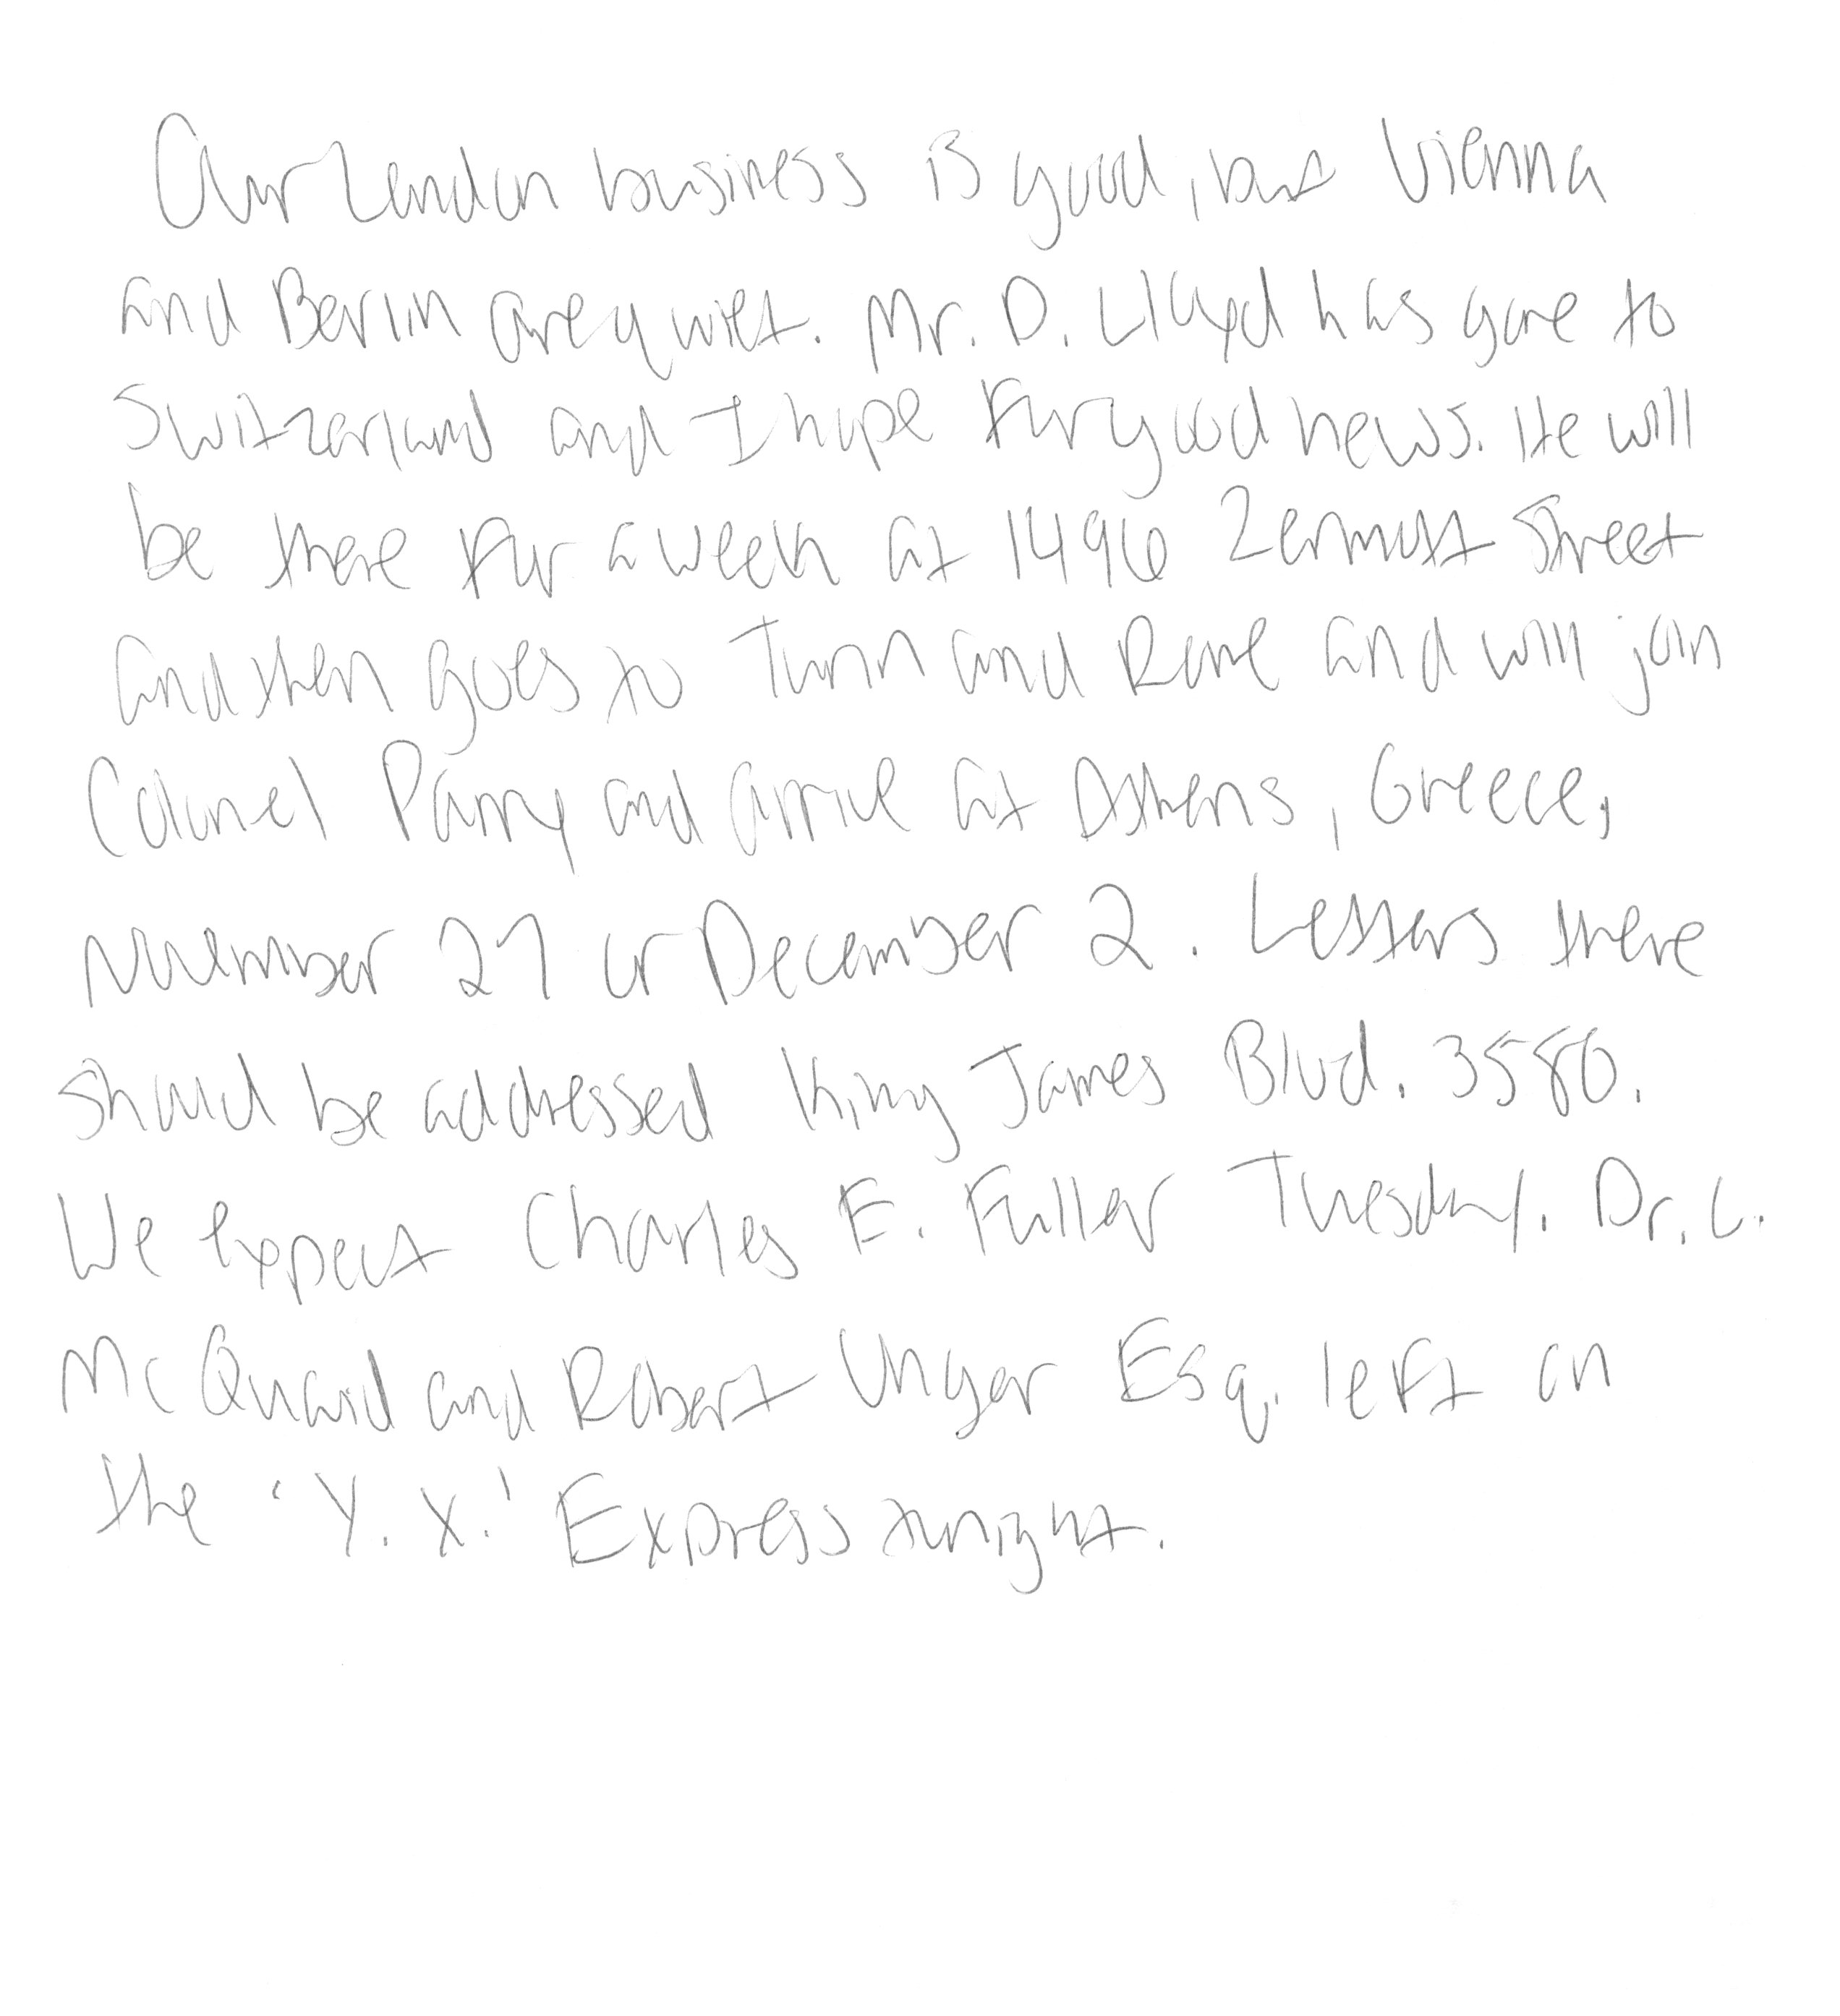 Our London business is good, but Vienna
and Berlin are quiet. Mr. D. Lloyd has gone to
Switzerland and I hope for good news. He will
be there for a week at 1496 Zermott Street
and then goes to Turin and Rome and will join
Colonel Parry and arrive at Athens, Greece,
November 27 or December 2. Letters there
should be addressed King James Blvd. 3580.
We expect Charles E. Fuller Tuesday. Dr. L.
McQuaid and Robert Unger Esq. left on
the 'Y. X.' Express tonight.